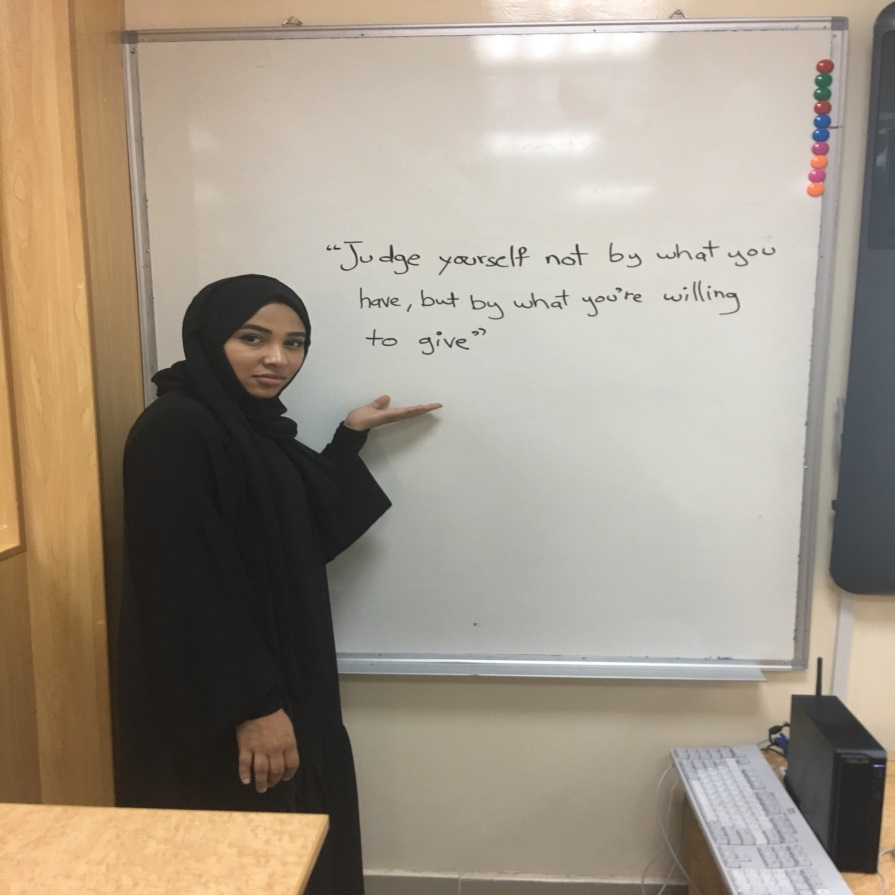 “Judge yourself not by what you
have, but by what you're willing
to give”